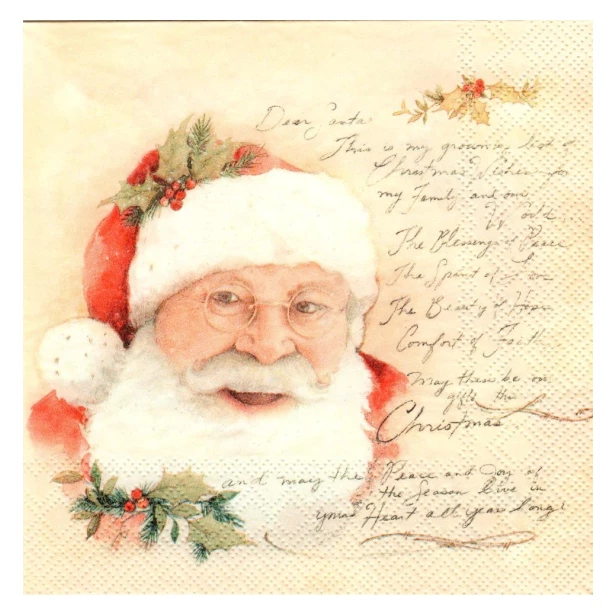 Dear Santa
This is my growing list of
Christmas Wishes for
my Family and our
World.
The Blessings of Peace
The Spirit of
The Beauty of Hope
Comfort of Faith
May these be our
gifts this
Christmas
and may the Peace and Joy of
the Season Live in
your Heart all year Long!